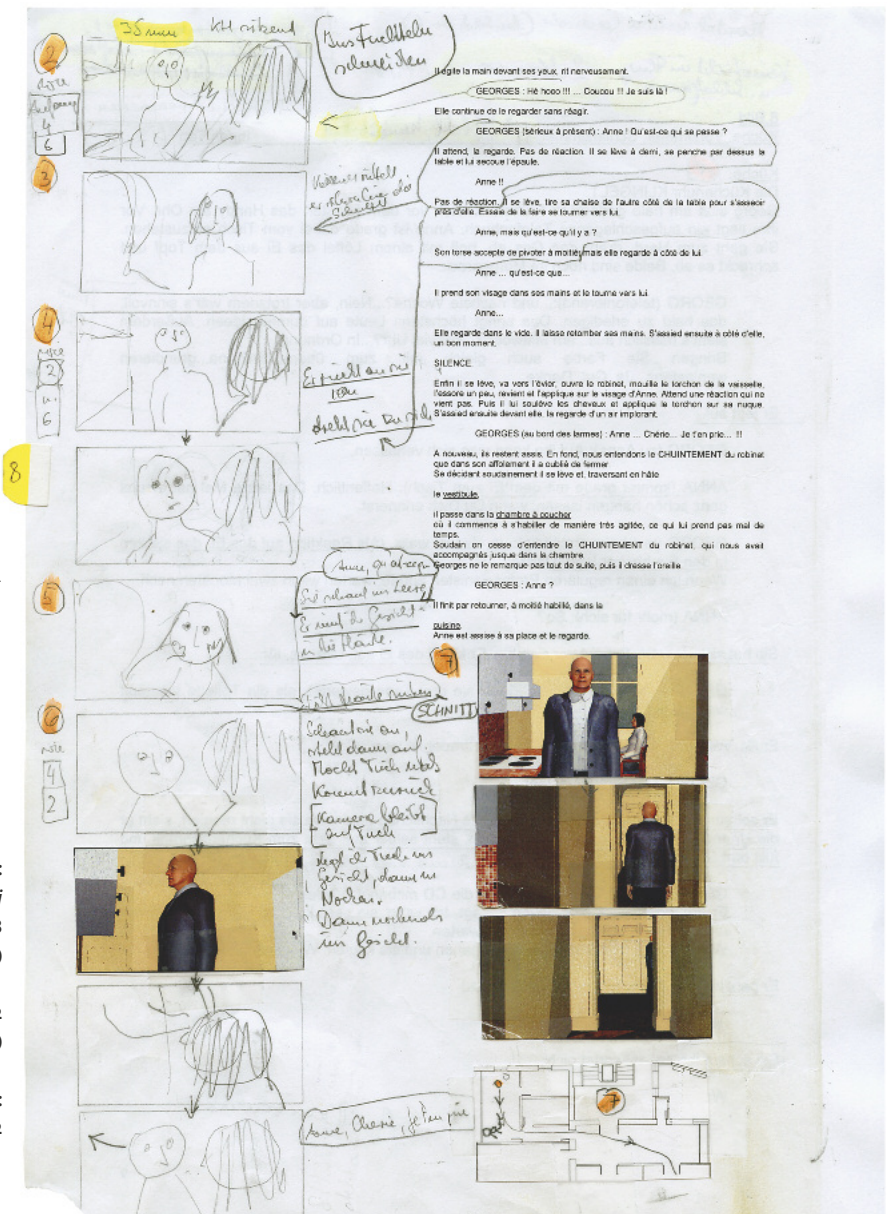 2
35mm
KH sitzend
Ins Fuchteln
schneiden
wie
Anfang
4
6
3
4
wie
2
u.
6
8
5
6
wie
4
2
Anne, qu'est-ce que
Sie schaut ins Leere,
Er nimmt ihr Gesicht
in die Hände.
SCHNITT
Schaut sie an,
steht dann auf
Macht Tuch nass
Kommt zurück
Kamera bleibt
auf Tuch
legt ihr Tuch ins
Gesicht, dann in
Nacken.
Dann nochmals
ins Gesicht.
Anne, Cherie, je t'en prie
Il agite la main devant ses yeux, rit nerveusement.
GEORGES : Hé hooo !!! ... Coucou !!! Je suis là !
Elle continue de le regarder sans réagir.
GEORGES (sérieux à présent) : Anne ! Qu'est-ce qui se passe ?
Il attend, la regarde. Pas de réaction. Il se lève à demi, se penche par dessus la
table et lui secoue l'épaule.
Anne !!
Pas de réaction. Il se lève, tire sa chaise de l'autre côté de la table pour s'asseoir
près d'elle. Essaie de la faire se tourner vers lui.
Anne, mais qu'est-ce qu'il y a ?
Son torse accepte de pivoter à moitié, mais elle regarde à côté de lui.
Anne ... qu'est-ce que...
Il prend son visage dans ses mains et le tourne vers lui
Anne...
Elle regarde dans le vide. Il laisse retomber ses mains. S'assied ensuite à côté d'elle,
un bon moment.
SILENCE.
Enfin il se lève, va vers l'évier, ouvre le robinet, mouille le torchon de la vaisselle,
l'essore un peu, revient et l'applique sur le visage d'Anne. Attend une réaction qui ne
vient pas. Puis il lui soulève les cheveux et applique le torchon sur sa nuque.
S'assied ensuite devant elle, la regarde d'un air implorant.
GEORGES (au bord des larmes) : Anne ... Chérie... Je t'en prie... !!!
A nouveau, ils restent assis. En fond, nous entendons le CHUINTEMENT du robinet
que dans son affolement il a oublié de fermer
Se décidant soudainement il se lève et, traversant en hâte
le vestibule,
il passe dans la chambre à coucher
où il commence à s'habiller de manière très agitée, ce qui lui prend pas mal de
temps.
Soudain on cesse d'entendre le CHUINTEMENT du robinet, qui nous avait
accompagnés jusque dans la chambre.
Georges ne le remarque pas tout de suite, puis il dresse l'oreille.
GEORGES : Anne ?
Il finit par retourner, à moitié habillé, dans la
cuisine.
Anne est assise à sa place et le regarde.
7
7